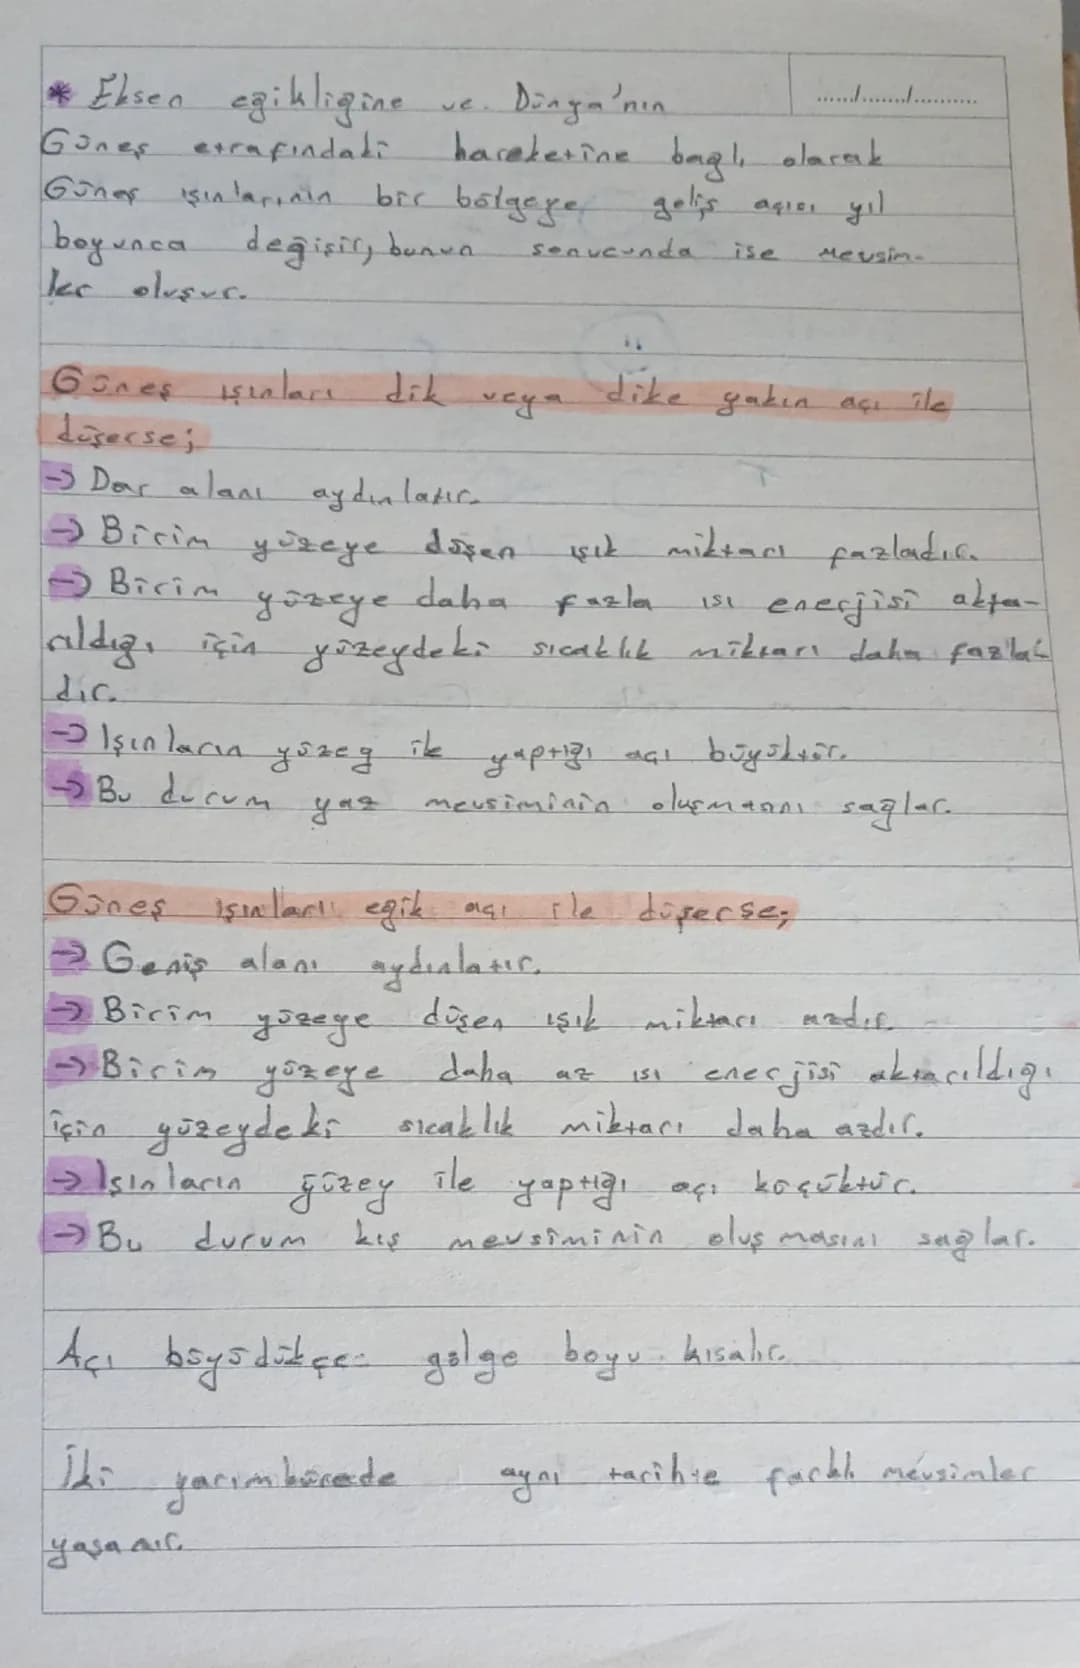 * Eksen eğikliğine ve Dünya'nın
Güneş etrafındaki hareketine bağlı olarak
Güneş ışınlarının bir bölgeye geliş açısı yıl
boyunca değişir, bunun sonucunda ise mevsim-
ler oluşur.
Güneş ışınları dik veya dike yakın açı ile
düşerse;
→ Dar alanı aydınlatır.
→ Birim yüzeye düşen ışık miktarı fazladır.
→ Birim yüzeye daha fazla ısı enerjisi akta-
rıldığı için yüzeydeki sıcaklık miktarı daha fazla
dır.
→ Işınların yüzey ile yaptığı açı büyüktür.
→ Bu durum yaz mevsiminin oluşmasını sağlar.
Güneş ışınları eğik açı ile düşerse;
→ Geniş alanı aydınlatır.
→ Birim yüzeye düşen ışık miktarı azdır.
→ Birim yüzeye daha az ısı enerjisi aktarıldığı
için yüzeydeki sıcaklık miktarı daha azdır.
→ Işınların yüzey ile yaptığı açı küçüktür.
→ Bu durum kış mevsiminin oluşmasını sağlar.
Açı büyüdükçe gölge boyu kısalır.
İki yarımkürede aynı tarihte farklı mevsimler
yaşanır.